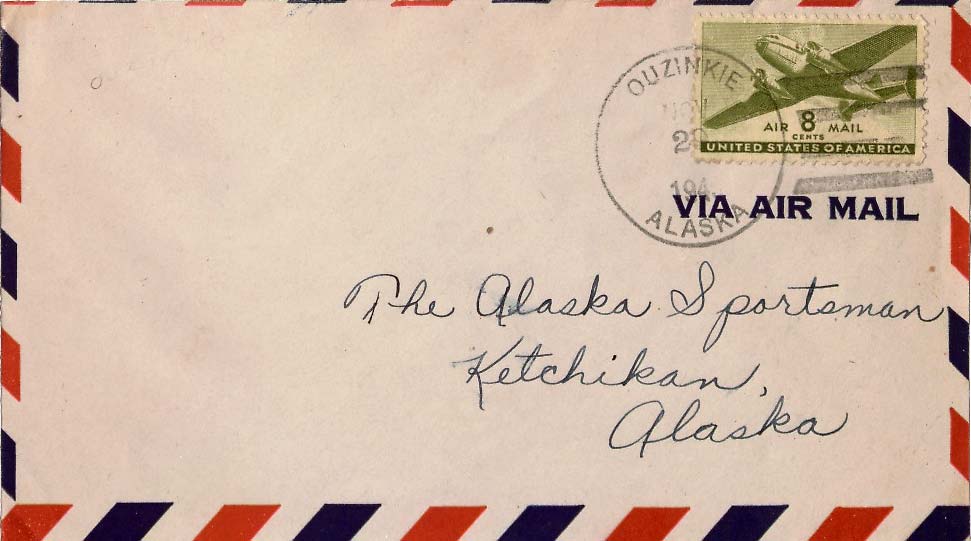 OUZINKIE
NOV
ALASKA
AIR 8 MAIL
CENTS
UNITED STATES OF AMERICA
VIA AIR MAIL
The Alaska Sportsman
Ketchikan,
Alaska